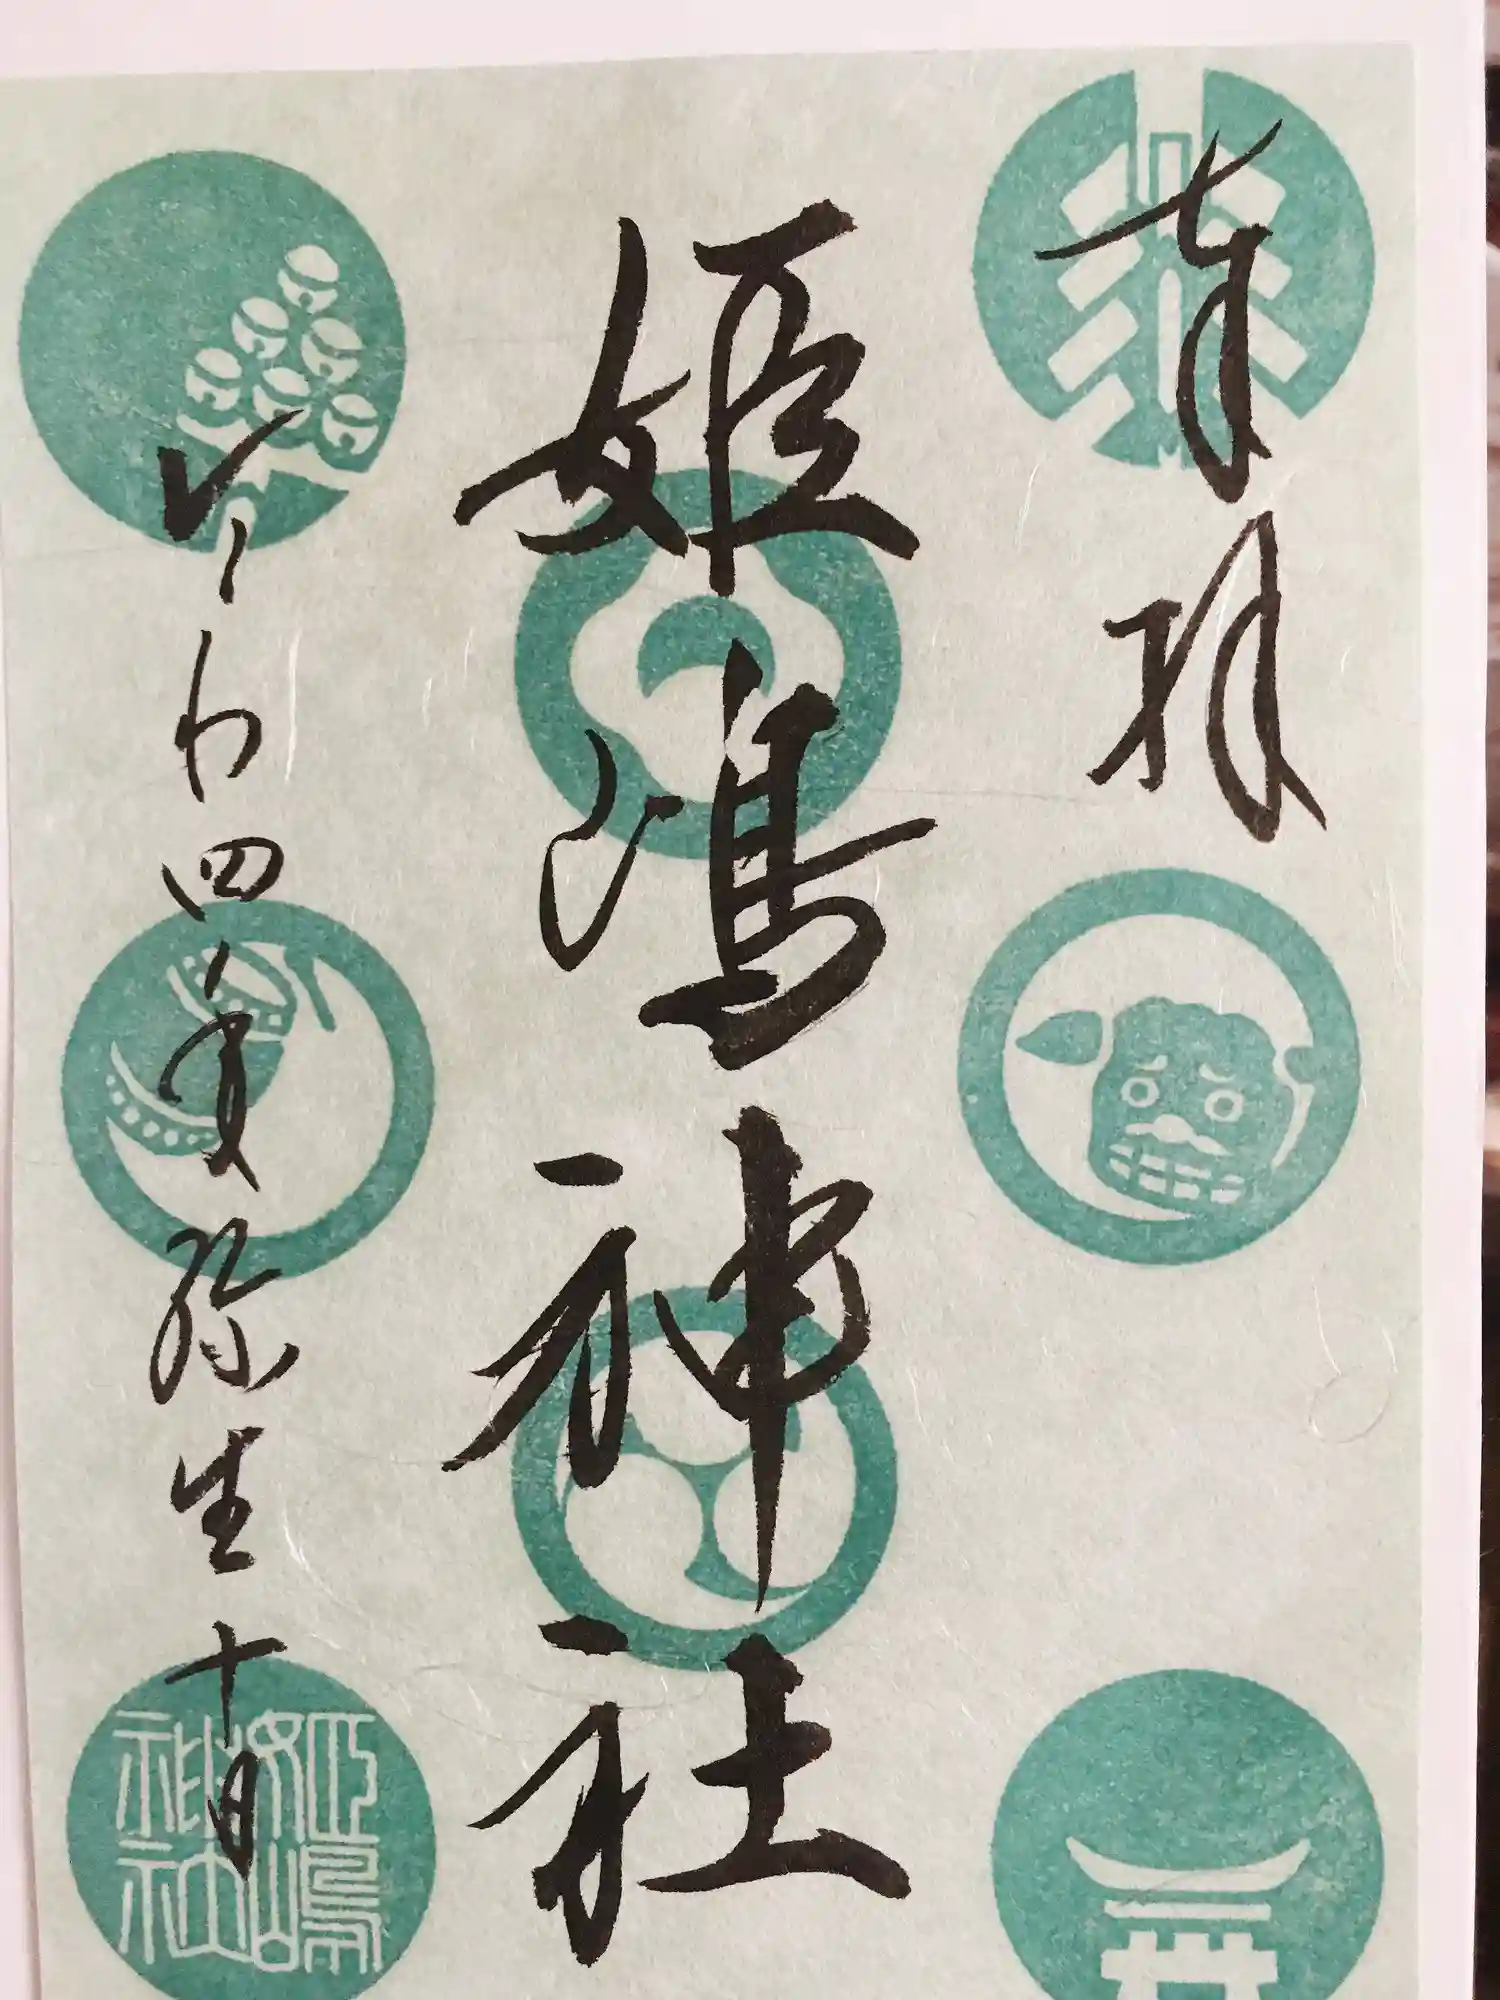 奉拝
姫嶋神社
令和四年弥生十日
姫嶋
神社